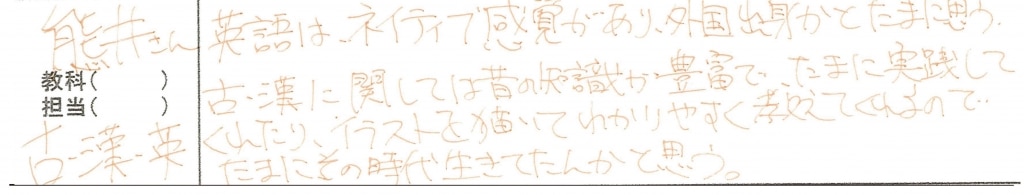 熊井さん
教科(　　)
担当(　　)
古・漢・英
英語は、ネイティブ感覚があり、外国出身かとたまに思う。
古・漢に関しては昔の知識が豊富で、たまに実践して
くれたり、イラストを描いてわかりやすく教えてくれるので
たまにその時代生きてたんかと思う。